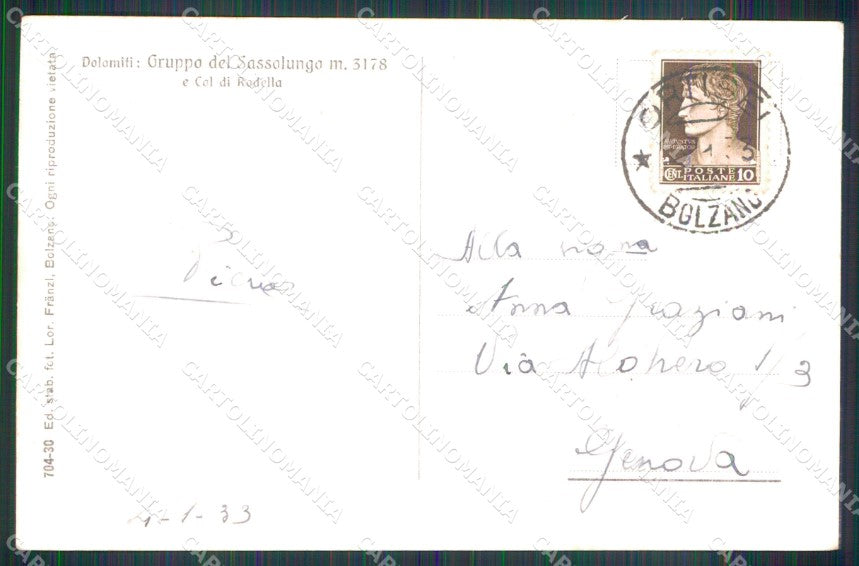 Dolomiti: Gruppo del Sassolungo m. 3178
e Col di Rodella
704-30 Ed. stab. fot. Lor. Fränzl, Bolzano. Ogni riproduzione vietata
POSTE
CENT. ITALIANE 10
ORTISEI
BOLZANO
Alla nonna
Anna Graziani
Via 1/3
Genova
4-1-33
CARTOLINOMANIA